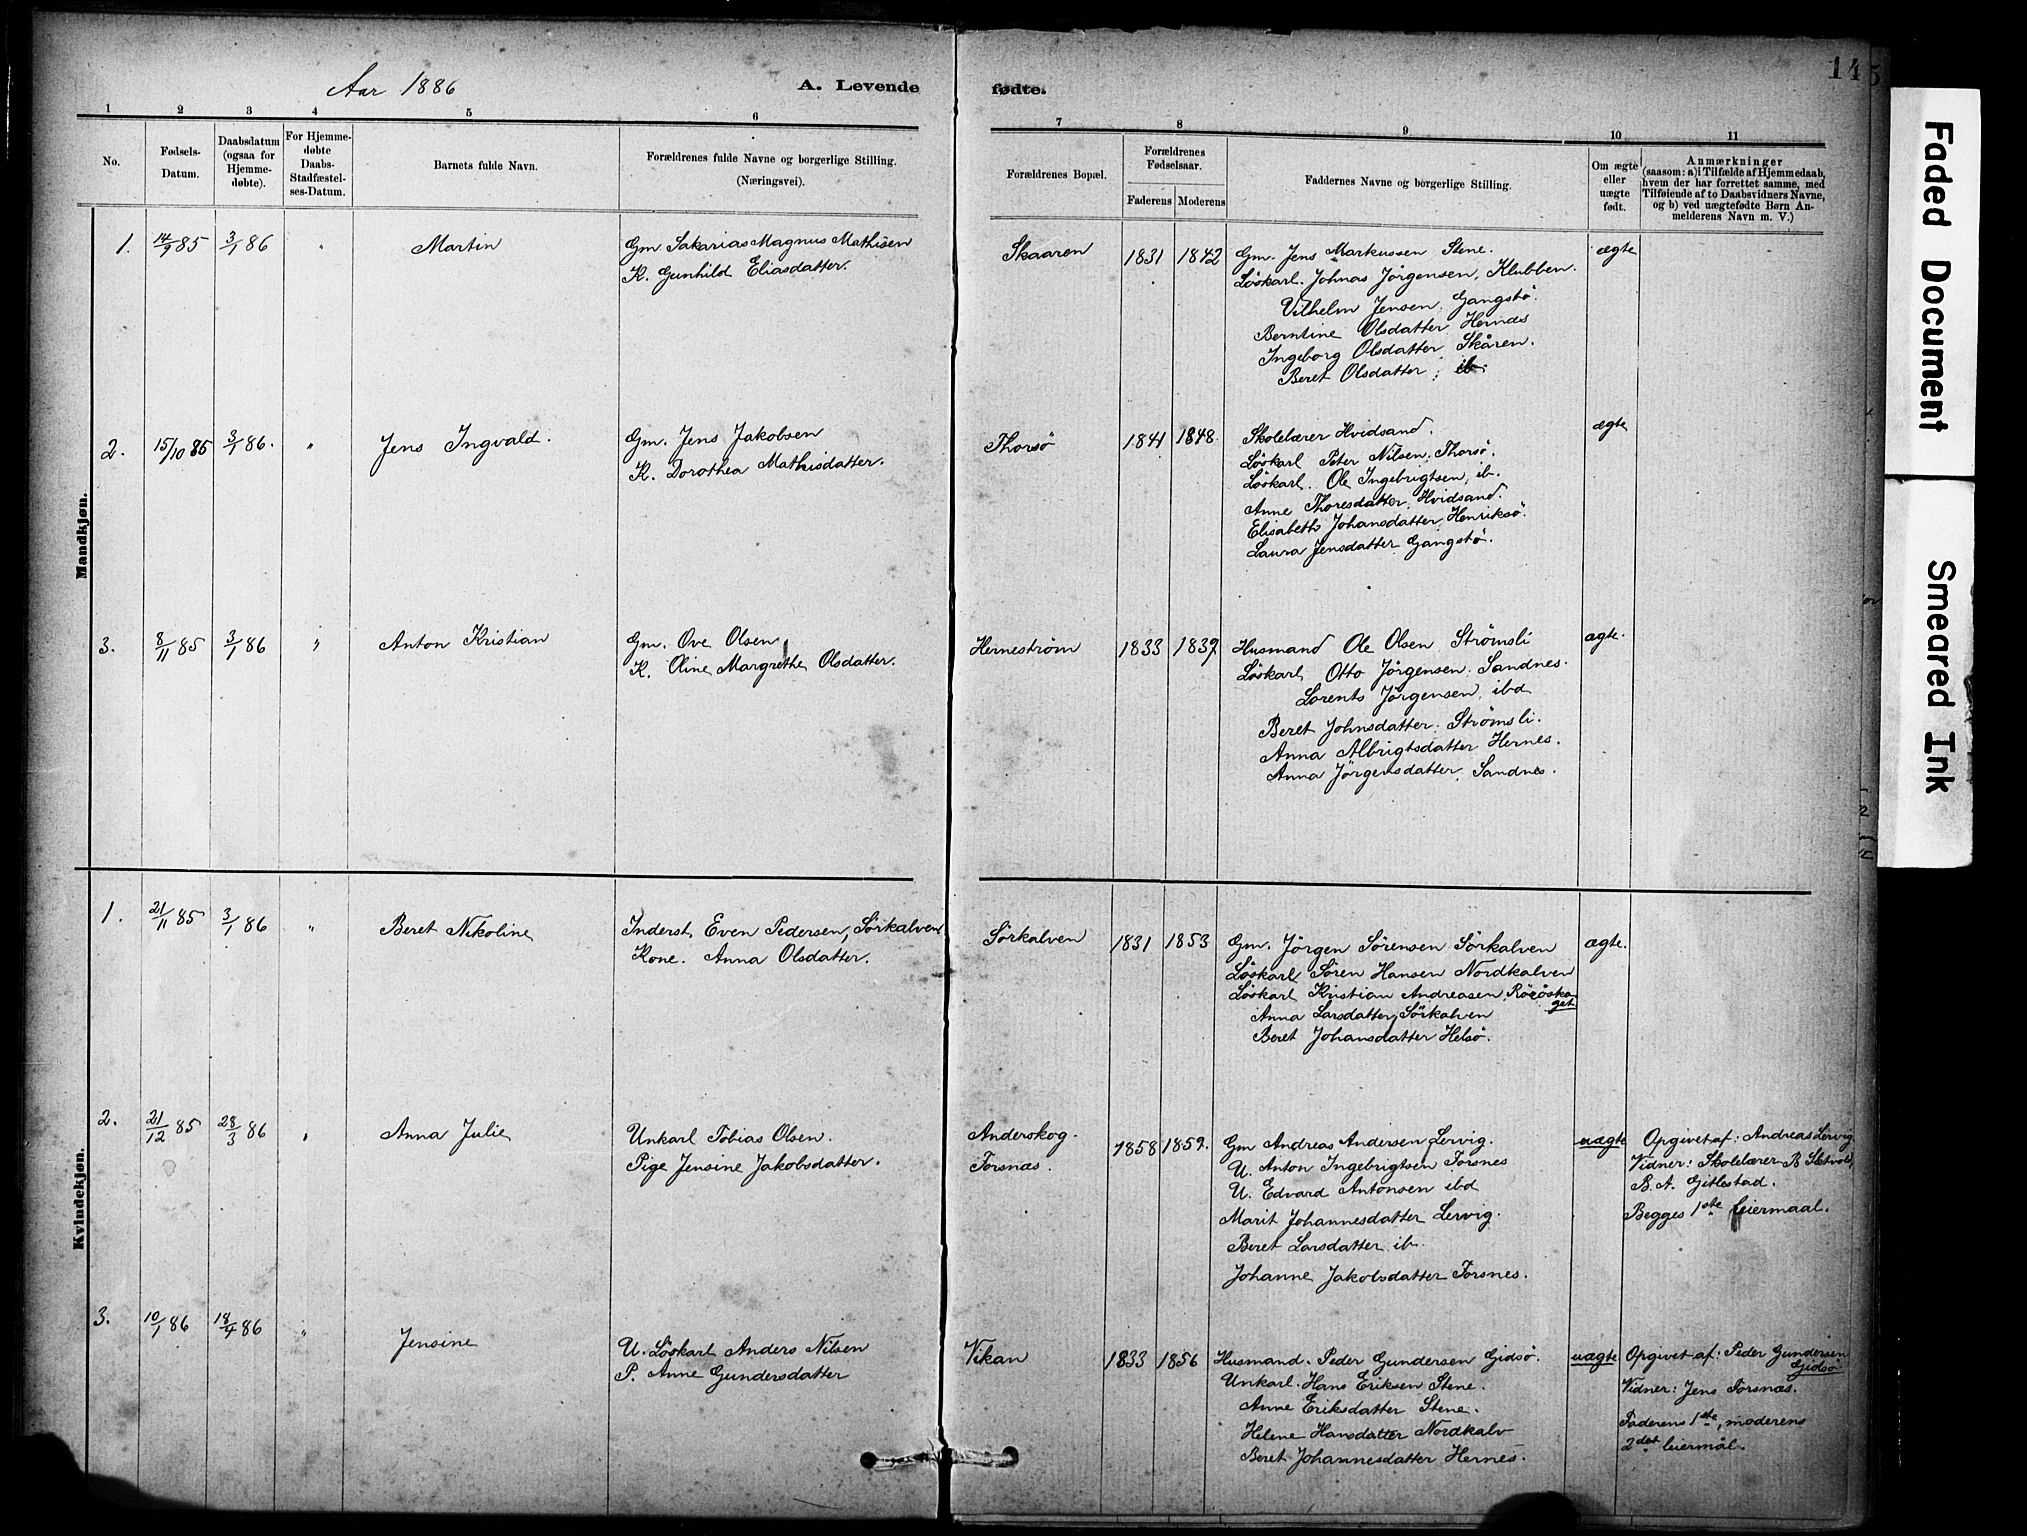 Aar 1886
A. Levende
fødte.
14
5
1 2 3 4 5 6 7 8 9 10 11
No.
Fødsels-
Datum.
Daabsdatum
(ogsaa for
Hjemme-
døbte).
For Hjemme-
døbte
Daabs-
Stadfæstel-
ses-Datum.
Barnets fulde Navn.
Forældrenes fulde Navne og borgerlige Stilling.
(Næringsvei).
Forældrenes Bopæl.
Forældrenes
Fødselsaar.
Faderens Moderens
Faddernes Navne og borgerlige Stilling.
Om ægte
eller
uægte
født.
Anmærkninger
(saasom: a) i Tilfælde af Hjemmedaab,
hvem der har forrettet samme, med
Tilføiende af to Daabsvidners Navne,
og b) ved uægtefødte Børn An-
melderens Navn m. V.)
Mandkjøn.
1. 14/9 85 3/1 86 " Martin
Gm. Sakarias Magnus Mathisen
K. Gunhild Eliasdatter.
Skaaren 1831 1842
Gm. Jens Markussen Stene.
Löskarl. Johnas Jörgensen, Klubben.
Vilhelm Jensen, Gangstö.
Berntine Olsdatter Hernæs
Ingeborg Olsdatter Skåren.
Beret Olsdatter; ib.
ægte
2. 15/10 85 3/1 86. " Jens Ingvald.
Gm. Jens Jakobsen
K. Dorothea Mathisdatter.
Thorsö 1841 1848.
Skolelærer Hvidsand.
Löskarl Peter Nilsen, Thorsö.
Löskarl. Ole Ingebrigtsen, ib.
Anne Thoresdatter, Hvidsand.
Elisabeth Johansdatter, Henriksö.
Laura Jensdatter Gangstö.
ægte
3. 8/11 85 3/1 86 " Anton Kristian
Gm. Ove Olsen
K. Oline Margrethe Olsdatter.
Herneström 1833 1839
Husmand Ole Olsen Strömsli
Löskarl Otto Jörgensen. Sandnes.
Lorents Jörgensen, ibd
Beret Johnsdatter. Strömsli.
Anna Albrigtsdatter Hernes.
Anna Jörgensdatter, Sandnes.
ægte.
Kvindekjøn.
1. 21/11 85 3/1 86 " Beret Nikoline
Inderst. Even Pedersen, Sörkalven
Kone. Anna Olsdatter.
Sörkalven 1831 1853
Gm. Jörgen Sörensen Sörkalven
Löskarl Sören Hansen Nordkalven
Löskarl Kristian Andreasen,
get.
Anna Larsdatter, Sörkalven
Beret Johansdatter Helsö.
ægte.
2. 21/12 85 28/3 86 " Anna Julie
Unkarl Tobias Olsen.
Pige Jensine Jakobsdatter.
Anderskog.
Forsnæs.
1858 1859.
Gm Andreas Andersen Lervig.
U. Anton Ingebrigtsen Forsnes
U. Edvard Antonsen ibd
Marit Johannesdatter Lervig.
Beret Larsdatter ib.
Johanne Jakobsdatter Forsnes.
uægte
Opgivet af: Andreas Lervig
Vidner: Skolelærer B Sletvold,
B. A. Gitlestad.
Begges 1ste leiermaal.
3. 10/1 86 18/4 86 " Jensine
U. Löskarl Anders Nilsen
P. Anne Gundersdatter
Vikan 1833 1856
Husmand. Peder Gundersen Gidsö.
Unkarl. Hans Eriksen Stene.
Anne Eriksdatter Stene.
Helene Hansdatter Nordkalv
Beret Johannesdatter Hernes.
uægte
Opgivet af: Peder Gundersen
Gidsö
Vidner: Jens Forsnæs.
Faderens 1ste, moderens
2det leiermål.
Faded Document
Smeared Ink